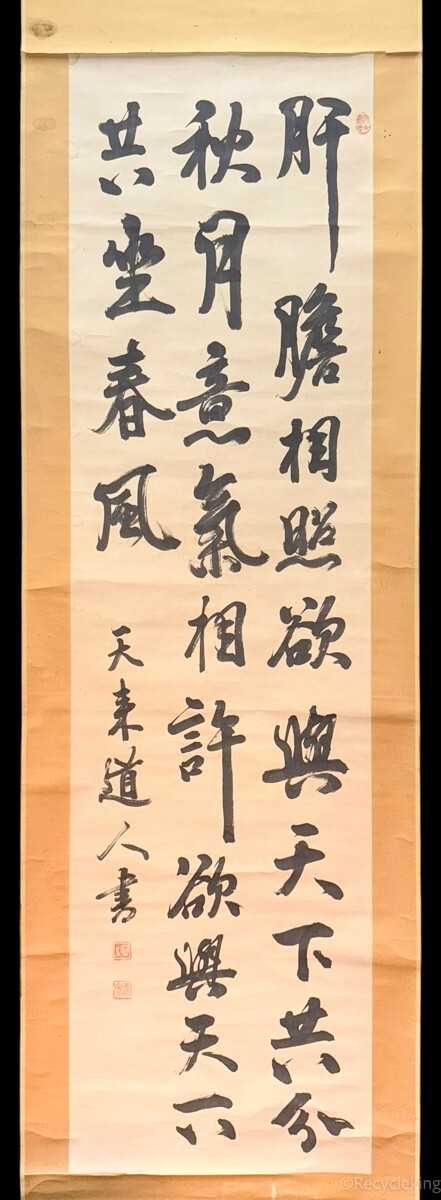 肝膽相照欲與天下共分
秋月意氣相許欲與天下
共坐春風
天来道人書
©RecycleKing